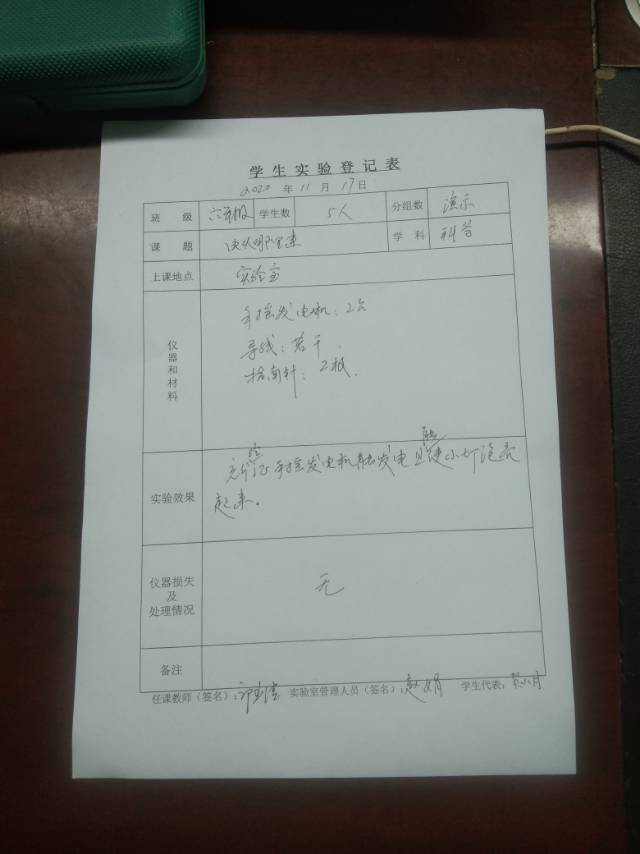 学生实验登记表
2020 年 11 月 17 日
班 级 六年级 学生数 5人 分组数 演示
课 题 学 科 科学
上课地点 实验室
仪器和材料
手摇发电机:2台
导线:若干.
指南针:2根.
实验效果
验证手摇发电机能发电且能使小灯泡亮
起来。
仪器损失及处理情况 无
备注
任课教师(签名): 实验室管理人员(签名):赵娟 学生代表: